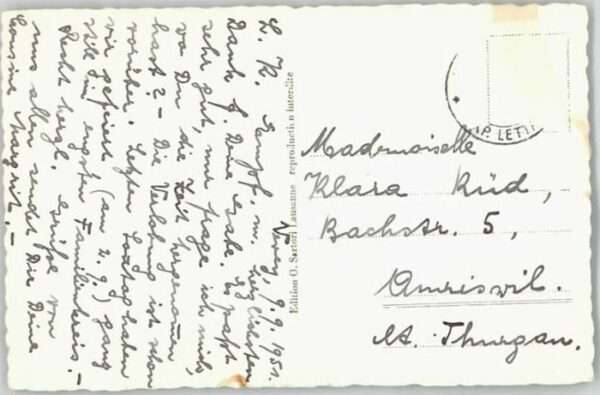 Vevey, 9.9.1951.
L. K. Empf. m. herzlichsten
Dank f. Deine Karte. Es passt
sehr gut, nur frage ich mich,
wo Du die Zeit hergenommen
hast? - Die Verlobung ist schon
vorüber. Letzten Sonntag haben
wir gefeiert, (am 2.9.) ganz
still im engsten Familienkreis. -
Recht herzl. Grüsse von
uns allen sendet Dir Deine
Cousine Margrit. -
Edition O. Sartori Lausanne reproduction interdite
P. LETT
Mademoiselle
Klara Rüd,
Bachstr. 5,
Amriswil.
Kt. Thurgau.